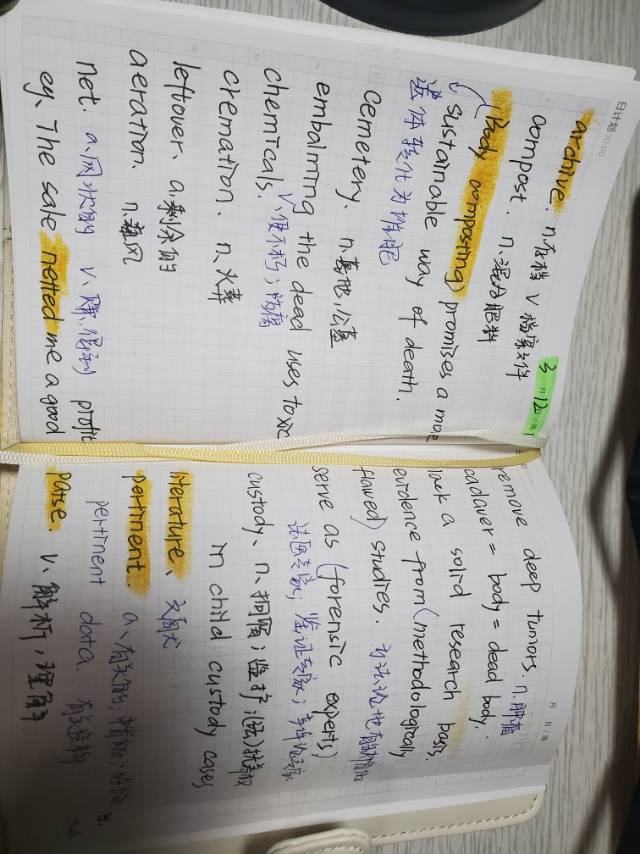 日计划
3月12日
archive. n.存档 v 档案文件
compost. n.混合肥料
(Body composting) promises a more
sustainable way of death.
遗体转化为堆肥
cemetery. n.墓地,公墓
embalming the dead uses toxic
chemicals. v.使不朽;防腐
cremation. n.火葬
leftover. a.剩余的
aeration. n.通风
net. a.网状的 v.赚得到 profit
eg. The sale netted me a good
月 日
remove deep tumors. n.肿瘤
cadaver = body = dead body.
lack a solid research basis.
evidence from (methodologically
flawed) studies. 方法论也有缺陷的
serve as (forensic experts)
法医专家,鉴证专家;
custody. n.拘留;监护;(法)抚养权
in child custody cases
literature. 文献
pertinent. a.有关的,
pertinent data. 有关资料
parse. v.解析,理解